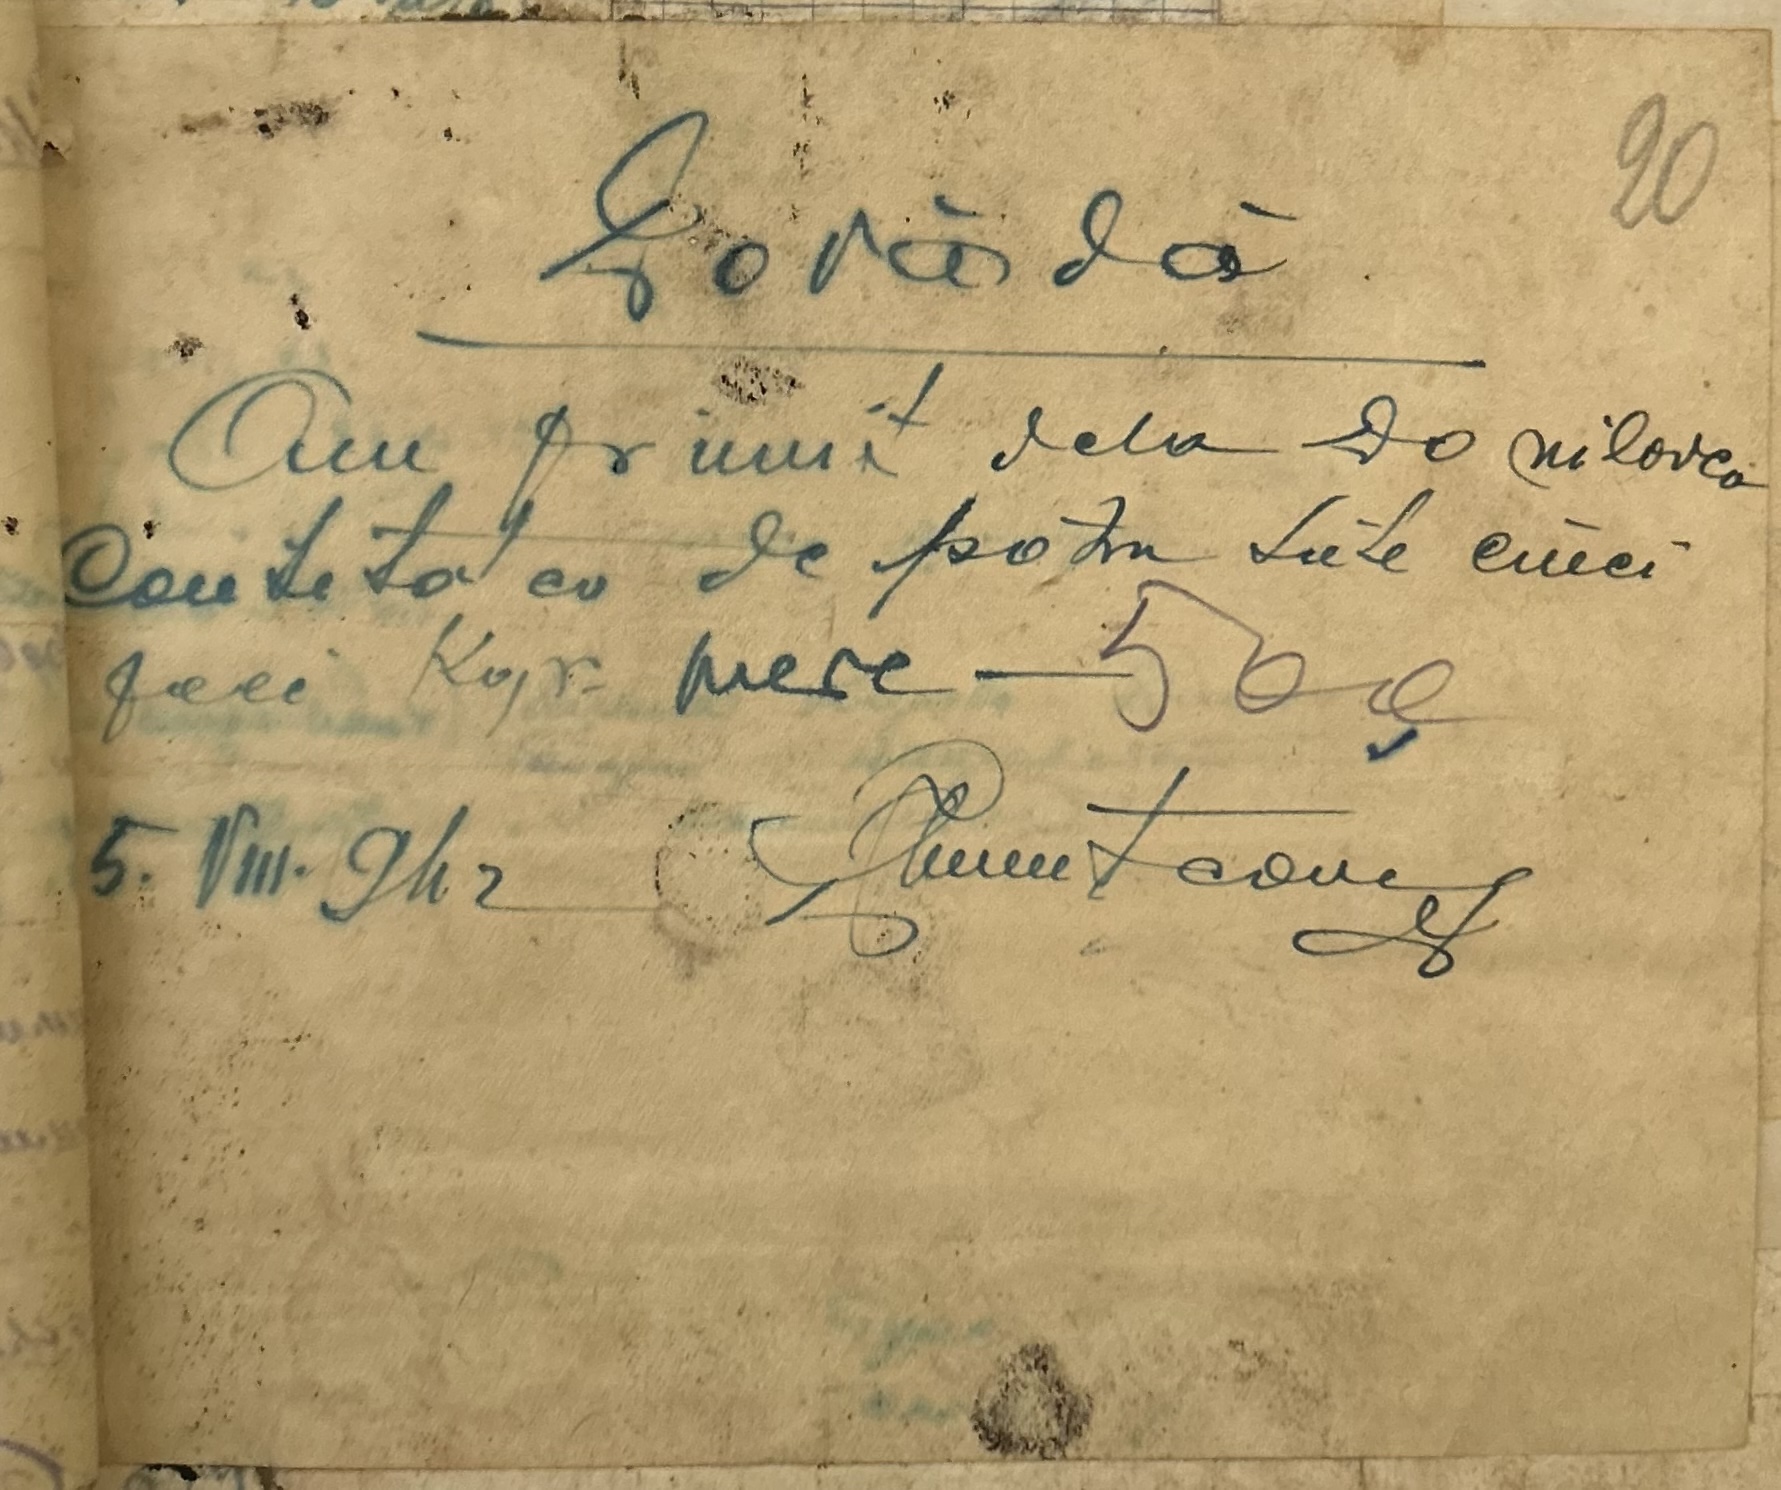 20
Dovădă
Am primit dela Do nilovca
Contitat ea de pătru sute cinci
zeci Kgr. mere
5. VIII. 942